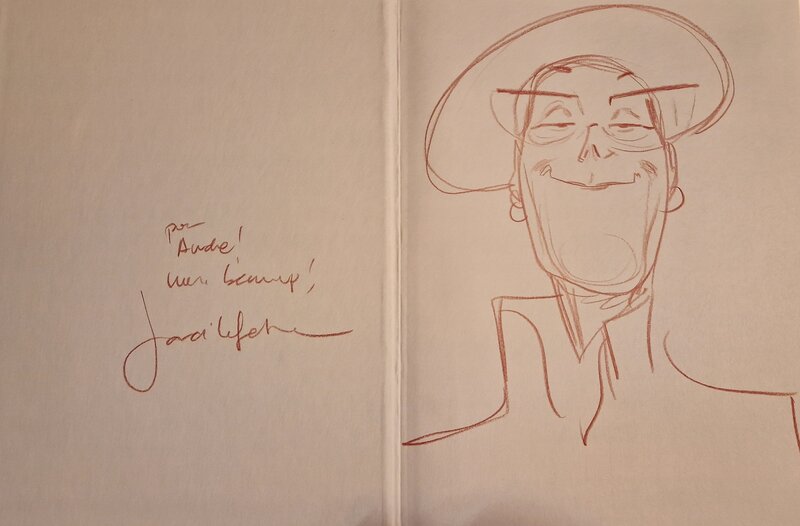 pour
André!
Merci beaucoup!
Jordi Lafebre